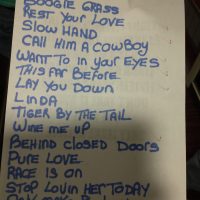 BOOGIE GRASS
REST YOUR LOVE
SLOW HAND
CALL HIM A COWBOY
WANT TO IN YOUR EYES
THIS FAR BEFORE
LAY YOU DOWN
LINDA
TIGER BY THE TAIL
WINE ME UP
BEHIND CLOSED DOORS
PURE LOVE
RACE IS ON
STOP LOVIN HER TODAY